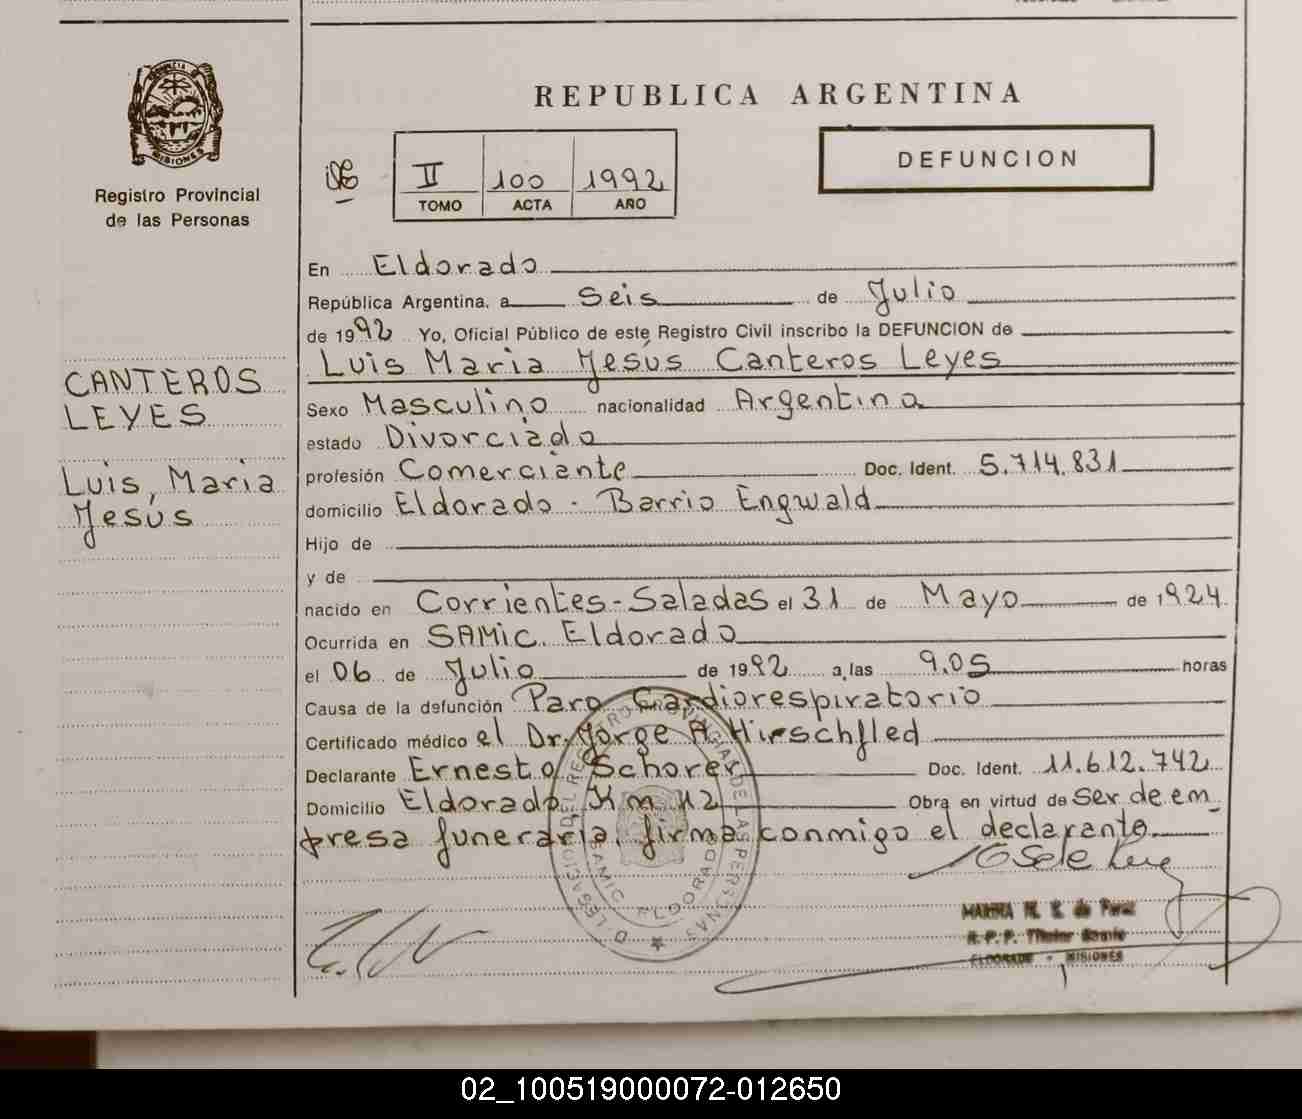 REPUBLICA ARGENTINA
PROVINCIA DE
MISIONES
Registro Provincial
de las Personas
II 100 1992
TOMO ACTA AÑO
DEFUNCION
CANTEROS
LEYES
Luis, Maria
Jesús
En Eldorado
República Argentina, a Seis de Julio
de 1992 Yo, Oficial Público de este Registro Civil inscribo la DEFUNCION de
Luis Maria Jesús Canteros Leyes
Sexo Masculino nacionalidad Argentina
estado Divorciado
profesión Comerciante Doc. Ident. 5.714.831
domicilio Eldorado - Barrio Engwald
Hijo de
y de
nacido en Corrientes - Saladas el 31 de Mayo de 1924
Ocurrida en SAMIC. Eldorado
el 06 de Julio de 1992 a las 9,05 horas
Causa de la defunción Paro Cardiorespiratorio
Certificado médico el Dr. Jorge A Hirschfled
Declarante Ernesto Schorer Doc. Ident. 11.612.742
Domicilio Eldorado, Km 12 Obra en virtud de ser de em
presa funeraria, firma conmigo el declarante
DELEGACION DEL REGISTRO PROVINCIAL DE LAS PERSONAS
SAMIC ELDORADO
ELDORADO - MISIONES
02_100519000072-012650